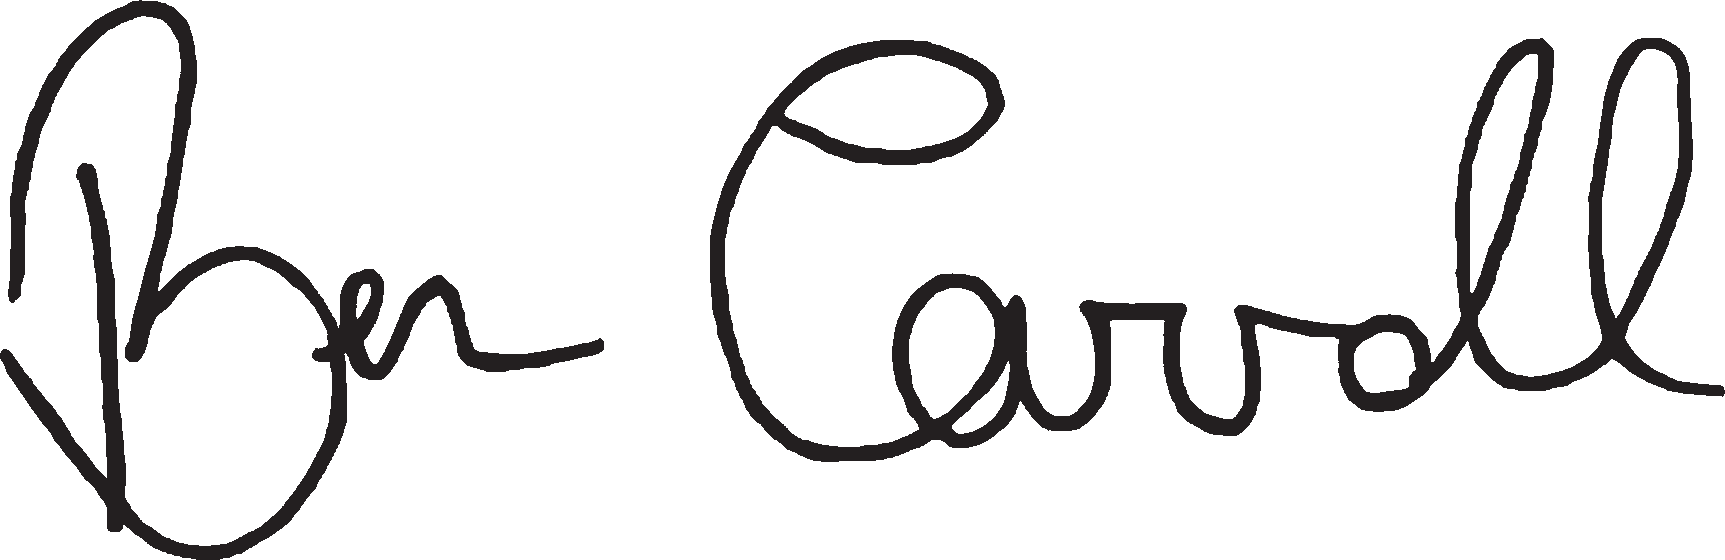 Ben Carroll